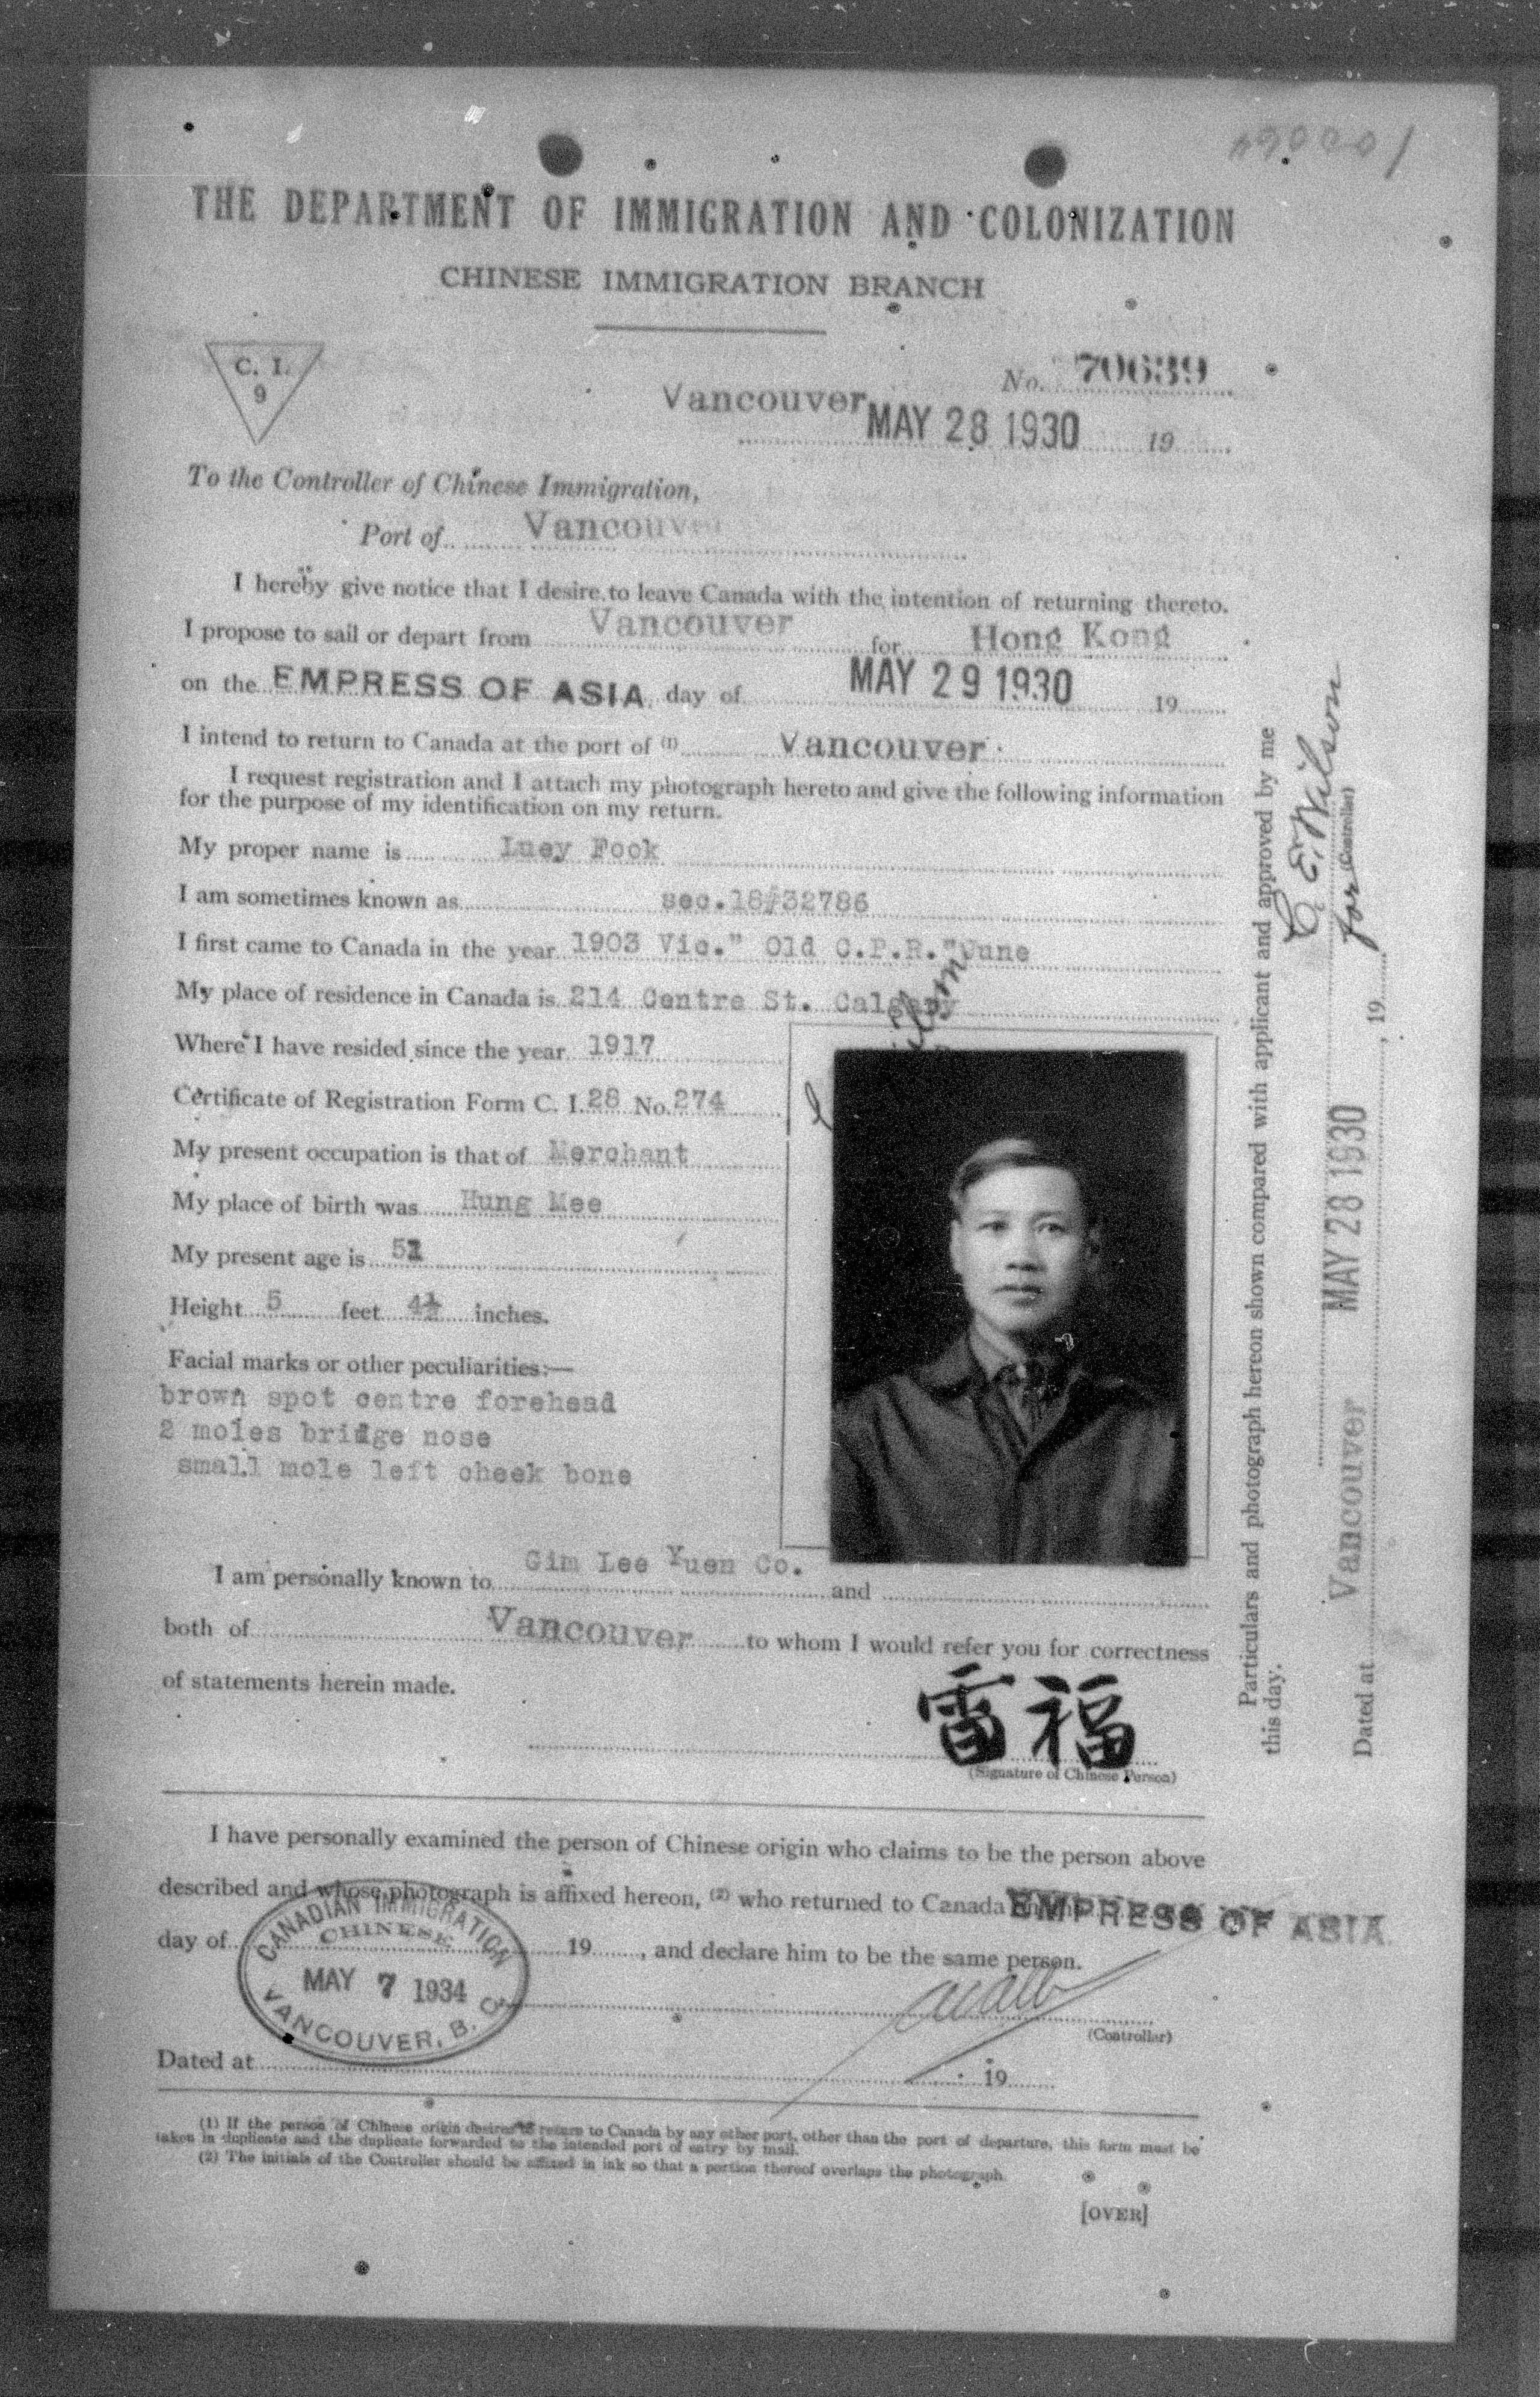 THE DEPARTMENT OF IMMIGRATION AND COLONIZATION
CHINESE IMMIGRATION BRANCH
C. I.
9
No. 70639
Vancouver MAY 28 1930 19
To the Controller of Chinese Immigration,
Port of Vancouver
I hereby give notice that I desire to leave Canada with the intention of returning thereto.
I propose to sail or depart from Vancouver for Hong Kong
on the EMPRESS OF ASIA day of MAY 29 1930 19
I intend to return to Canada at the port of (1) Vancouver
I request registration and I attach my photograph hereto and give the following information
for the purpose of my identification on my return.
My proper name is Luey Fook
I am sometimes known as sec.18#32786
I first came to Canada in the year 1903 Vic." Old C.P.R."June
My place of residence in Canada is 214 Centre St. Calgary
Where I have resided since the year 1917
Certificate of Registration Form C. I. 28 No. 274
My present occupation is that of Merchant
My place of birth was Hung Mee
My present age is
Height 5 feet 4½ inches.
Facial marks or other peculiarities:—
brown spot centre forehead
2 moles bridge nose
small mole left cheek bone
I am personally known to Gim Lee Yuen Co. and
both of Vancouver to whom I would refer you for correctness
of statements herein made.
雷福
(Signature of Chinese Person)
I have personally examined the person of Chinese origin who claims to be the person above
described and whose photograph is affixed hereon, (2) who returned to Canada EMPRESS OF ASIA
day of 19 , and declare him to be the same person.
CANADIAN IMMIGRATION
CHINESE
MAY 7 1934
VANCOUVER, B. C.
(Controller)
Dated at 19
(1) If the person of Chinese origin desires to return to Canada by any other port, other than the port of departure, this form must be
taken in duplicate and the duplicate forwarded to the intended port of entry by mail.
(2) The initials of the Controller should be affixed in ink so that a portion thereof overlaps the photograph.
[OVER]
Particulars and photograph hereon shown compared with applicant and approved by me
this day.
C. E. Wilson
for (Controller)
Dated at Vancouver MAY 28 1930 , 19